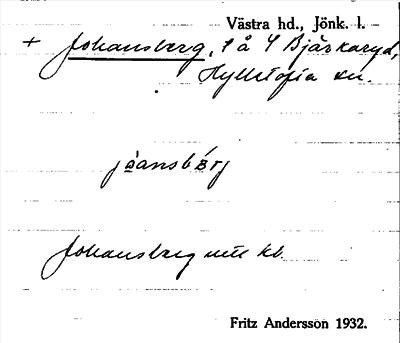 Västra hd., Jönk. l.
+ Johansberg, t å 4 Bjärkaryd,
Hylletofta sn.
jòansbǽrj
Johansberg mtl kb.
Fritz Andersson 1932.